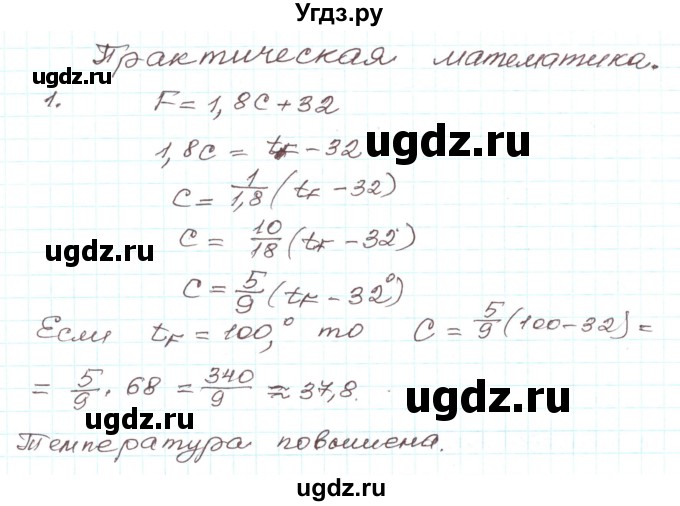 Угдз.ру
Практическая математика.
ugdz.ru
1. F = 1,8C + 32
1,8C = t_F - 32
ugdz.ru
C = 1/1,8 (t_F - 32)
C = 10/18 (t_F - 32)
ugdz.ru
C = 5/9 (t_F - 32°)
Если t_F = 100,° то C = 5/9 (100 - 32) =
= 5/9 · 68 = 340/9 ≈ 37,8.
ugdz.ru
ugdz.ru
Температура повышена.
ugdz.ru